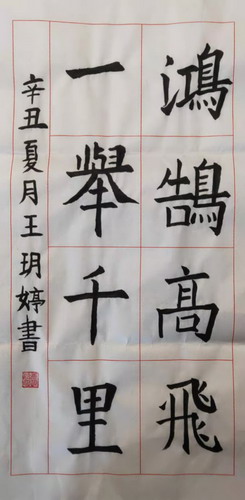 鴻鵠高飛
一舉千里
辛丑夏月王玥婷書